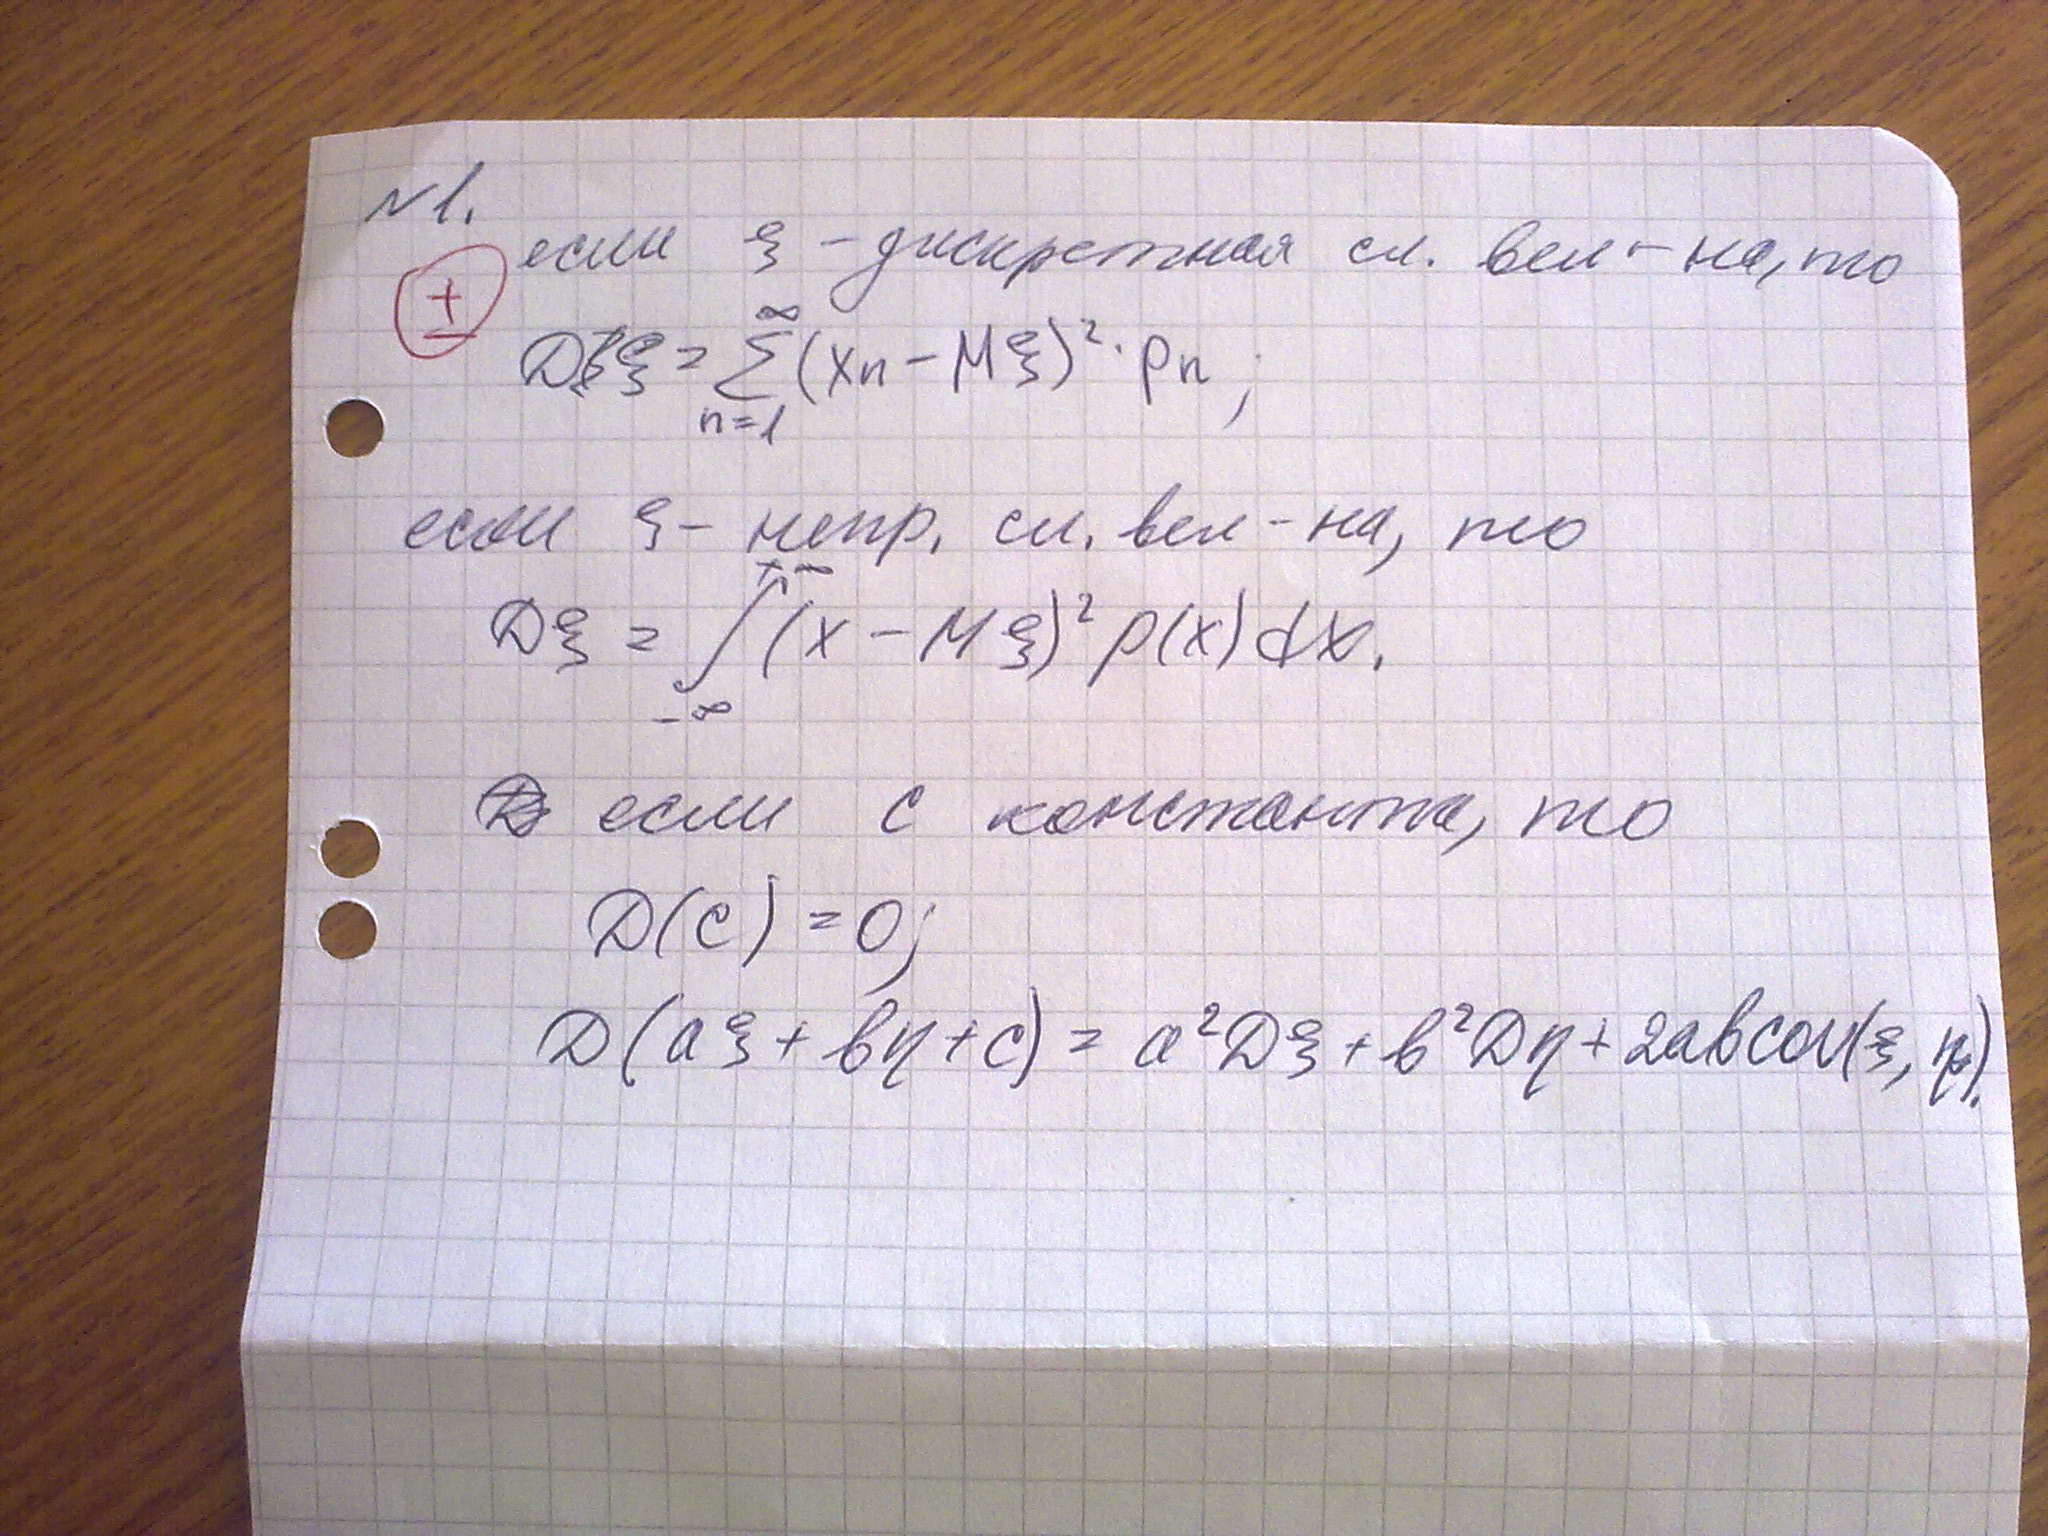 №1.
если ξ - дискретная сл. вел-на, то
±
Dξ = ∑ (xn - Mξ)² · pn;
∞
n=1
если ξ - непр. сл. вел-на, то
+∞
Dξ = ∫ (x - Mξ)² p(x) dx.
-∞
если c константа, то
D(c) = 0;
D(aξ + bη + c) = a²Dξ + b²Dη + 2abcov(ξ, η).